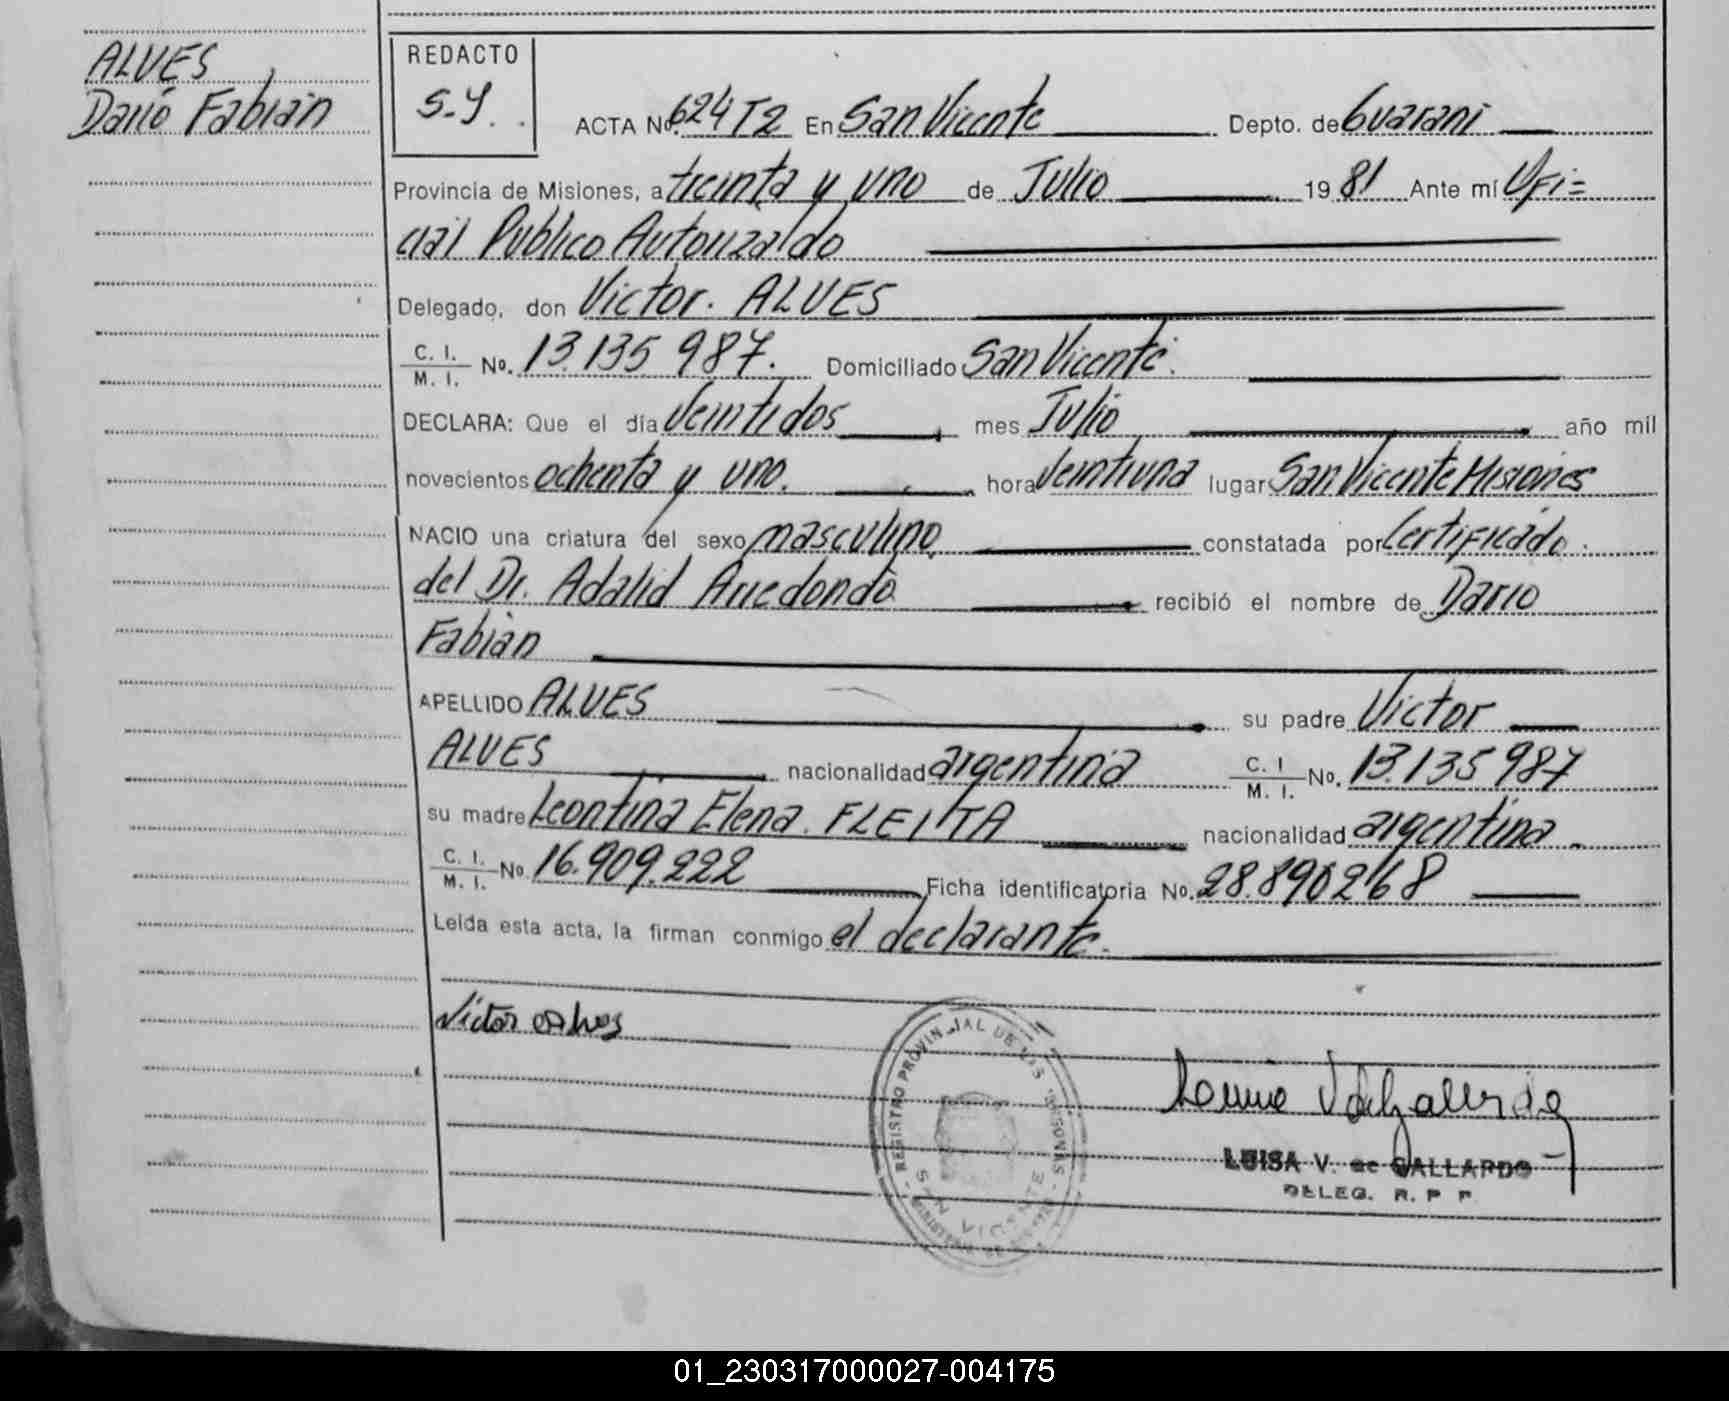 ALVES,
Darío Fabián
REDACTO
S.Y.
ACTA No. 624 T2 En San Vicente Depto. de Guaraní
Provincia de Misiones, a treinta y uno de Julio 1981 Ante mí Ofi=
cial Publico Autorizado
Delegado, don Victor. ALVES
C. I. / M. I. No. 13.135 987. Domiciliado San Vicente.
DECLARA: Que el día veintidos mes Julio año mil
novecientos ochenta y uno. hora veintiuna lugar San Vicente Misiones
NACIO una criatura del sexo masculino, constatada por Certificado.
del Dr. Adalid Arredondo recibió el nombre de Darío
Fabián
APELLIDO ALVES su padre Victor
ALVES nacionalidad argentina C. I / M. I. No. 13.135 987
su madre Leontina Elena. FLEITA nacionalidad argentina.
C. I. / M. I. No. 16.909.222 Ficha identificatoria No. 28.890268
Leída esta acta, la firman conmigo el declarante.
Victor
REGISTRO PROVINCIAL DE LAS PERSONAS
SAN VICENTE
LUISA V. de GALLARDO
DELEG. R. P P.
01_230317000027-004175